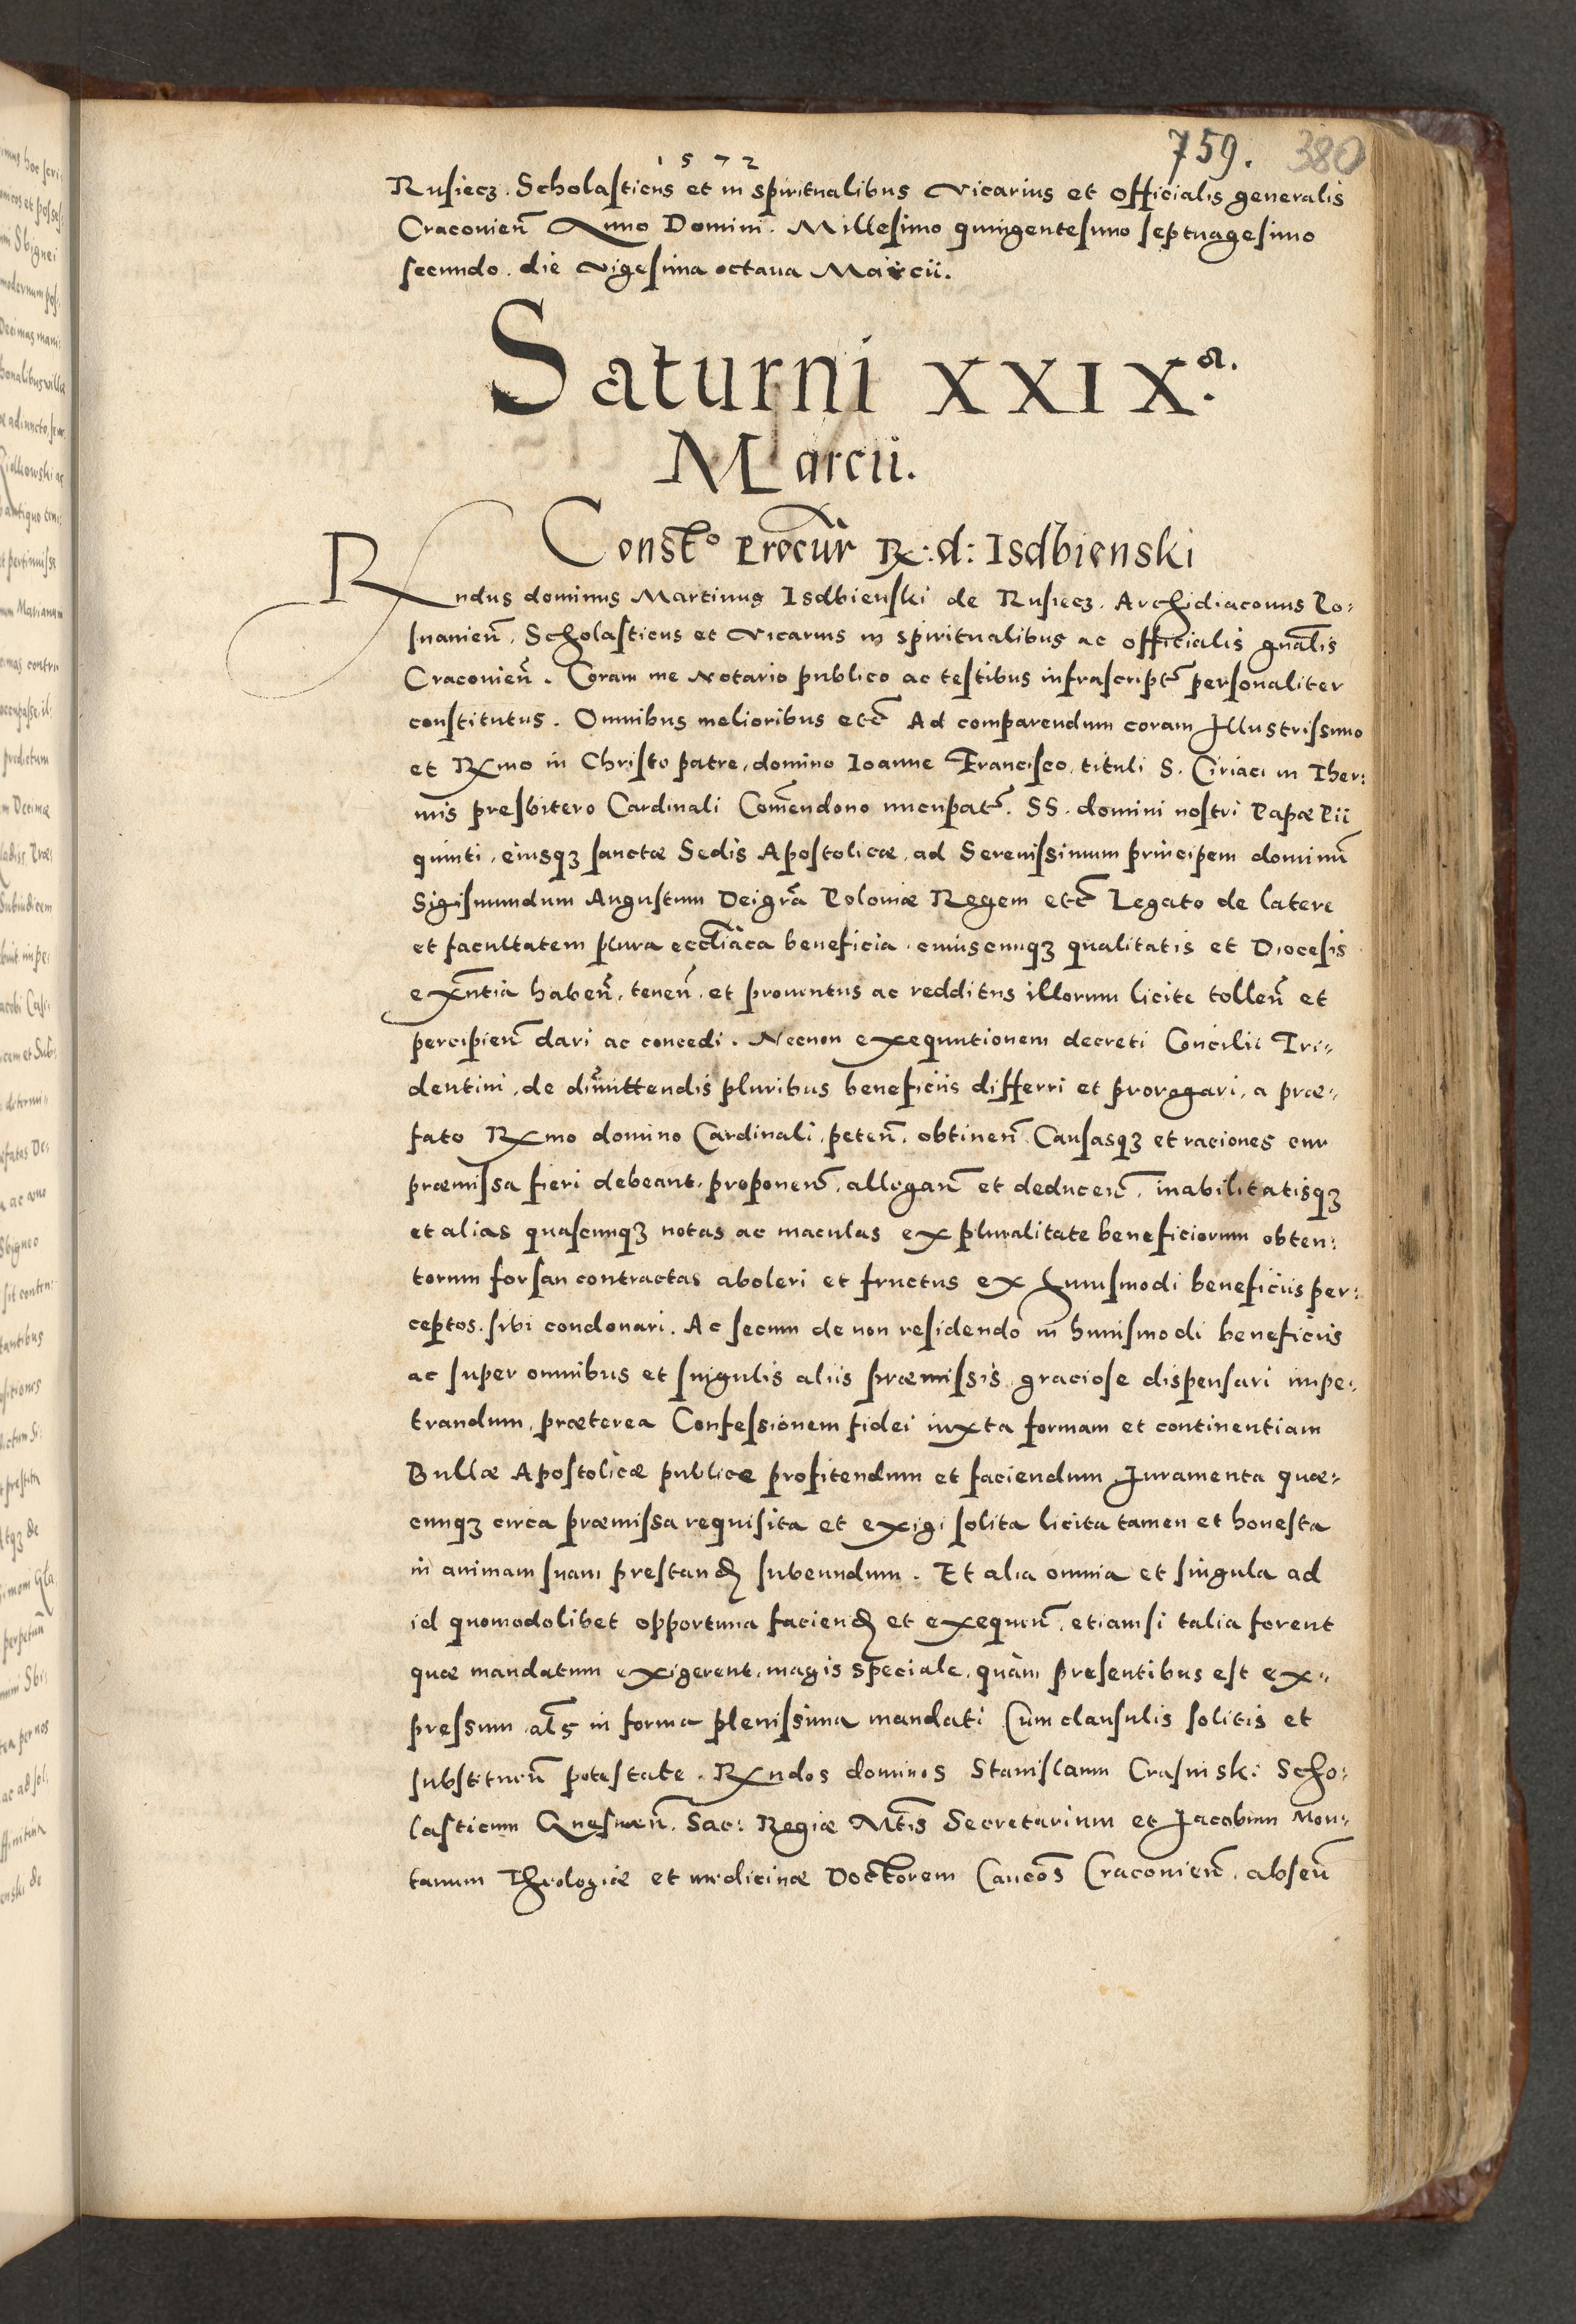 759. 380
1572
Rusiecz. Scholasticus et in spiritualibus Vicarius et Officialis generalis
Craconien̄ Anno Domini. Millesimo quingentesimo septuagesimo
secundo. die Vigesima octaua Marcii.
Saturni XXIX.a
Marcii.
Const.o Procur̄ Rx: d: Isdbienski
Rndus dominus Martinus Isdbienski de Rusiecz. Archidiaconus Po:
snanien̄, Scholasticus et Vicarius in spiritualibus ac officialis gnālis
Craconien̄. Coram me Notario publico ac testibus infrascript̄ personaliter
constitutus. Omnibus melioribus etc̄ Ad comparendum coram Illustrissimo
et Rxmo in Christo patre, domino Ioanne Francisco, tituli S. Ciriaci in Ther:
mis presbitero Cardinali Com̄endono nuncupat̄. SS. domini nostri Papæ Pii
quinti, eiusqȝ sanctæ Sedis Apostolicæ, ad Serenissimum principem dominū
Sigismundum Augustum Deigrā Poloniæ Regem etc̄ Legato de latere
et facultatem plura eccliāca beneficia, cuiuscunqȝ qualitatis et Diocesis
exn̄tia haben̄, tenen̄, et prouentus ac redditus illorum licite tollen̄ et
percipien̄ dari ac concedi. Necnon exequutionem decreti Concilii Tri:
dentini, de dimittendis pluribus beneficiis differri et prorogari, a præ:
fato Rxmo domino Cardinali, peten̄, obtinen̄ Causasqȝ et raciones cur
præmissa fieri debeant, proponen̄, allegan̄ et deducen̄, inabilitatisqȝ
et alias quascunqȝ notas ac maculas ex pluralitate beneficiorum obten:
torum forsan contractas aboleri et fructus ex huiusmodi beneficiis per:
ceptos, sibi condonari. Ac secum de non residendo in huiusmodi beneficiis
ac super omnibus et singulis aliis præmissis graciose dispensari impe:
trandum, præterea Confessionem fidei iuxta formam et continentiam
Bullæ Apostolicæ publice profitendum et faciendum Juramenta quæ:
cunqȝ circa præmissa requisita et exigi solita licita tamen et honesta
in animam suam prestand̄ subeundum. Et alia omnia et singula ad
id quomodolibet opportuna faciend̄ et exequen̄, etiamsi talia forent
quæ mandatum exigerent, magis speciale, quàm presentibus est ex:
pressum, al̄s in forma plenissima mandati Cum clausulis solitis et
substituen̄ potestate. Rxndos dominos Stanislaum Crasinski Scho:
lasticum Gnesnen̄. Sac: Regiæ Mt̄is Secretarium et Jacobum Mon:
tanum Theologiæ et medicinæ Doctorem Cancōs Craconien̄, absen̄